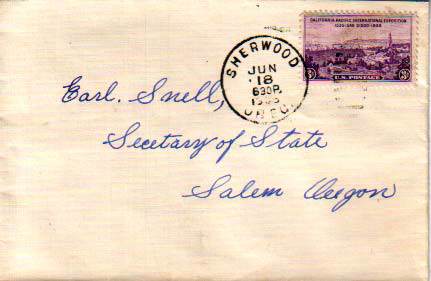 CALIFORNIA PACIFIC INTERNATIONAL EXPOSITION
SAN DIEGO
3¢ U.S. POSTAGE 3¢
SHERWOOD
JUN
18
630P
OREG.
Earl. Snell,
Secetary of State
Salem Oregon